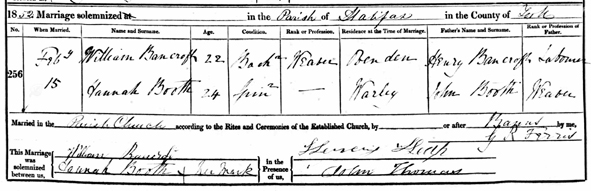 1852 Marriage solemnized at in the Parish of Halifax in the County of York
No. When Married. Name and Surname. Age. Condition. Rank or Profession. Residence at the Time of Marriage. Father's Name and Surname. Rank or Profession of Father.
256 Feby William Bancroft 22 Bachr Weaver Ovenden Henry Bancroft Labourer
15 Hannah Booth 24 Spinr — Warley John Booth Weaver
Married in the Parish Church according to the Rites and Ceremonies of the Established Church, by or after Banns by me,
This Marriage was solemnized between us, William Bancroft in the Presence of us,
Hannah Booth × her Mark John Thomas